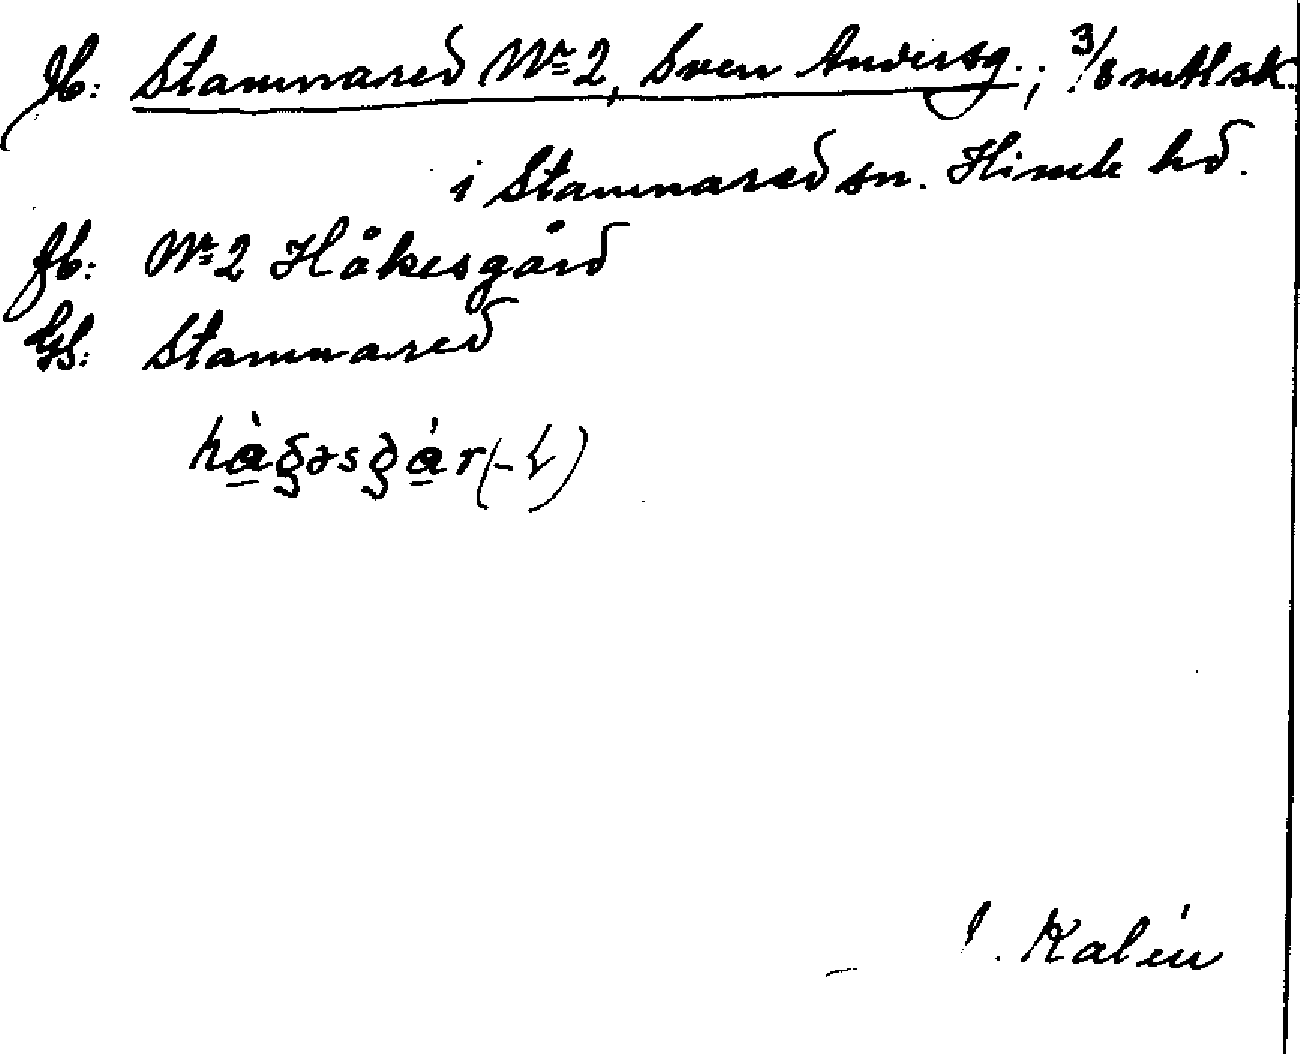 Jb: Stamnared Nr 2, Sven Andersg.; 3/8 mtl sk.
i Stamnared sn. Himle hd.
fb: Nr 2 Håkesgård
GS: Stamnared
J. Kalén